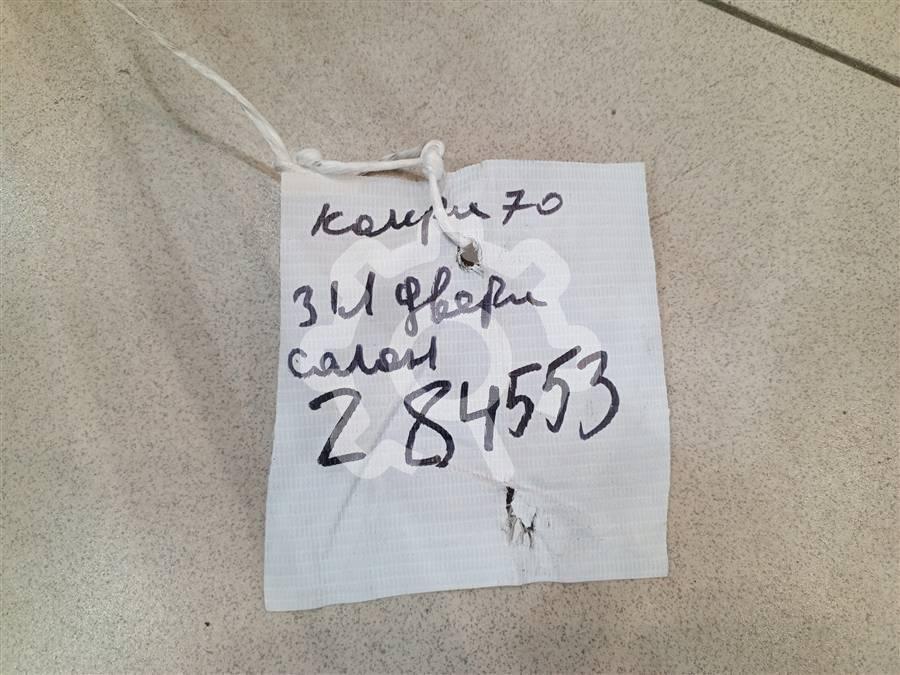 камри 70
ЗЛ двери
салон
284553